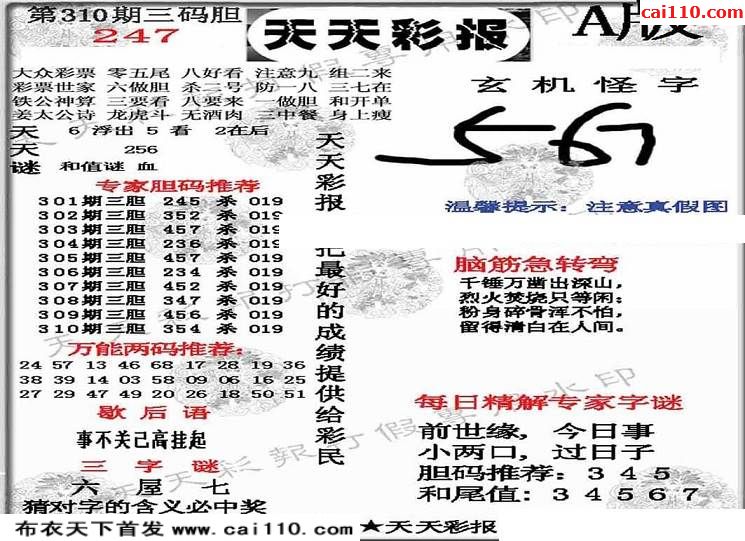 第310期三码胆
247
天天彩报
A版
cai110.com
大众彩票 零五尾 八好看 注意九 组二来
彩票世家 六做胆 杀二号 防一八 三七在
铁公神算 三要看 八要来 一做胆 和开单
姜太公诗 龙虎斗 无酒肉 三中餐 身上瘦
天 6 浮出 5 看 2在后
天 256
谜 和值谜 血
专家胆码推荐
301期三胆 245 杀 019
302期三胆 352 杀 019
303期三胆 457 杀 019
304期三胆 236 杀 019
305期三胆 457 杀 019
306期三胆 234 杀 019
307期三胆 452 杀 019
308期三胆 347 杀 019
309期三胆 456 杀 019
310期三胆 354 杀 019
万能两码推荐:
24 57 13 46 68 17 28 19 36
38 39 14 03 58 09 06 16 25
27 29 47 49 20 26 18 50 51
歇后语
事不关己高挂起
三字谜
六 屋 七
猜对字的含义必中奖
天天彩报
把最好的成绩提供给彩民
玄机怪字
温馨提示：注意真假图
脑筋急转弯
千锤万凿出深山，
烈火焚烧只等闲；
粉身碎骨浑不怕，
留得清白在人间。
每日精解专家字谜
前世缘，今日事
小两口，过日子
胆码推荐：3 4 5
和尾值：3 4 5 6 7
布衣天下首发 www.cai110.com ★天天彩报